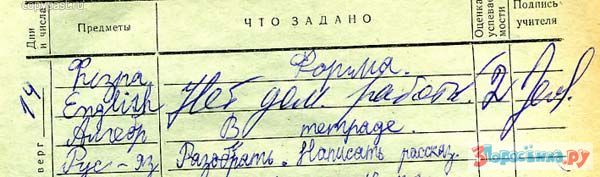 copypast.ru
Дни и числа Предметы ЧТО ЗАДАНО Оценка успевае- мости Подпись учителя
14 Физра Форма.
English Нет дом. работы. 2
Алгебр В тетраде.
верг Рус-яз Разобрать. Написать рассказ.
Зюросёнка.ру